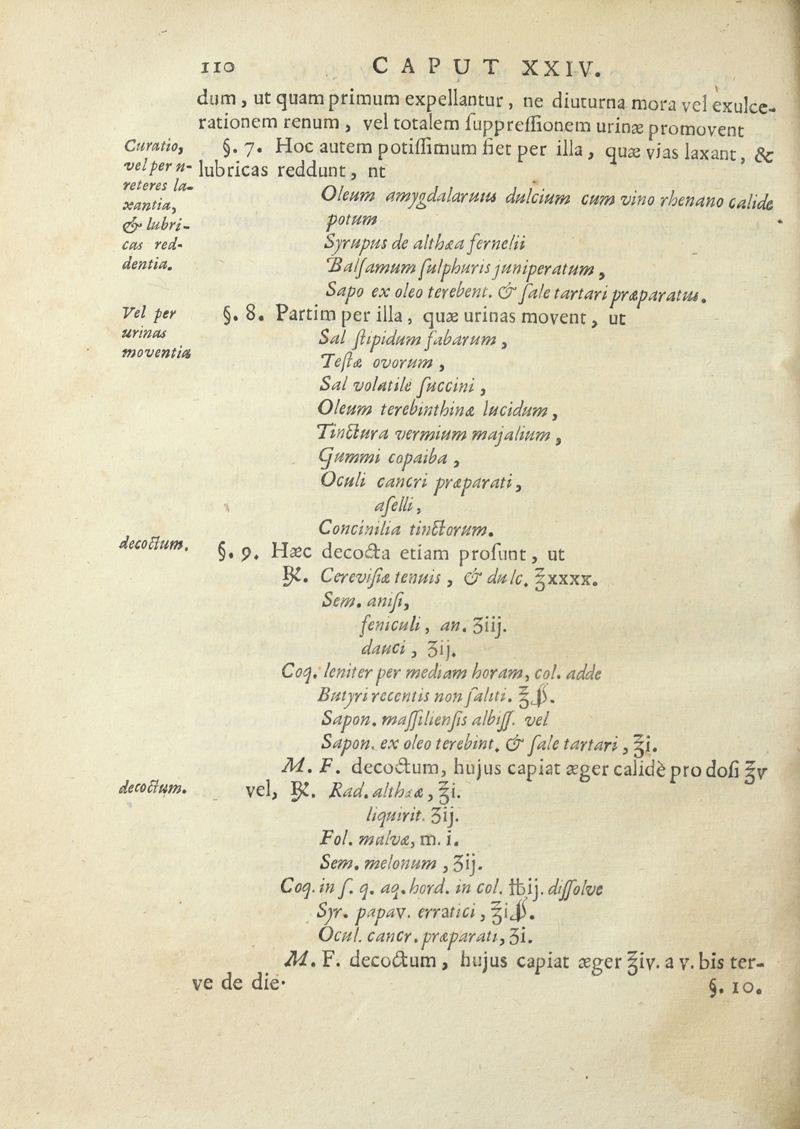 110 CAPUT XXIV.
dum, ut quam primum expellantur, ne diuturna mora vel exulce-
rationem renum, vel totalem ſuppreſſionem urinæ promovent
Curatio,
vel per u-
reteres la-
xantia,
& lubri-
cas red-
dentia.
§. 7. Hoc autem potiſſimum fiet per illa, quæ vias laxant, &
lubricas reddunt, nt
Oleum amygdalarum dulcium cum vino rhenano calide
potum
Syrupus de althæa fernelii
Balſamum ſulphuris juniperatum,
Sapo ex oleo terebent. & ſale tartari præparatus.
Vel per
urinas
moventia
§. 8. Partim per illa, quæ urinas movent, ut
Sal ſtipidum fabarum,
Teſtæ ovorum,
Sal volatile ſuccini,
Oleum terebinthinæ lucidum,
Tinctura vermium majalium,
Gummi copaiba,
Oculi cancri præparati,
aſelli,
Concinilia tinctorum.
decoctum.
§. 9. Hæc decocta etiam proſunt, ut
℞. Cereviſiæ tenuis, & dulc. ℥xxxx.
Sem. aniſi,
feniculi, an. ʒiij.
dauci, ʒij.
Coq. leniter per mediam horam, col. adde
Butyri recentis non ſaliti. ℥ſß.
Sapon. maſſilienſis albiſſ. vel
Sapon. ex oleo terebint. & ſale tartari, ℥i.
M. F. decoctum, hujus capiat æger calidè pro doſi ℥v
decoctum.
vel, ℞. Rad. althææ, ℥i.
liquirit. ʒij.
Fol. malvæ, m. i.
Sem. melonum, ʒij.
Coq. in ſ. q. aq. hord. in col. ℔ij. diſſolve
Syr. papav. erratici, ℥iß.
Ocul. cancr. præparati, ʒi.
M. F. decoctum, hujus capiat æger ℥iv. a v. bis ter-
ve de die.
§. 10.